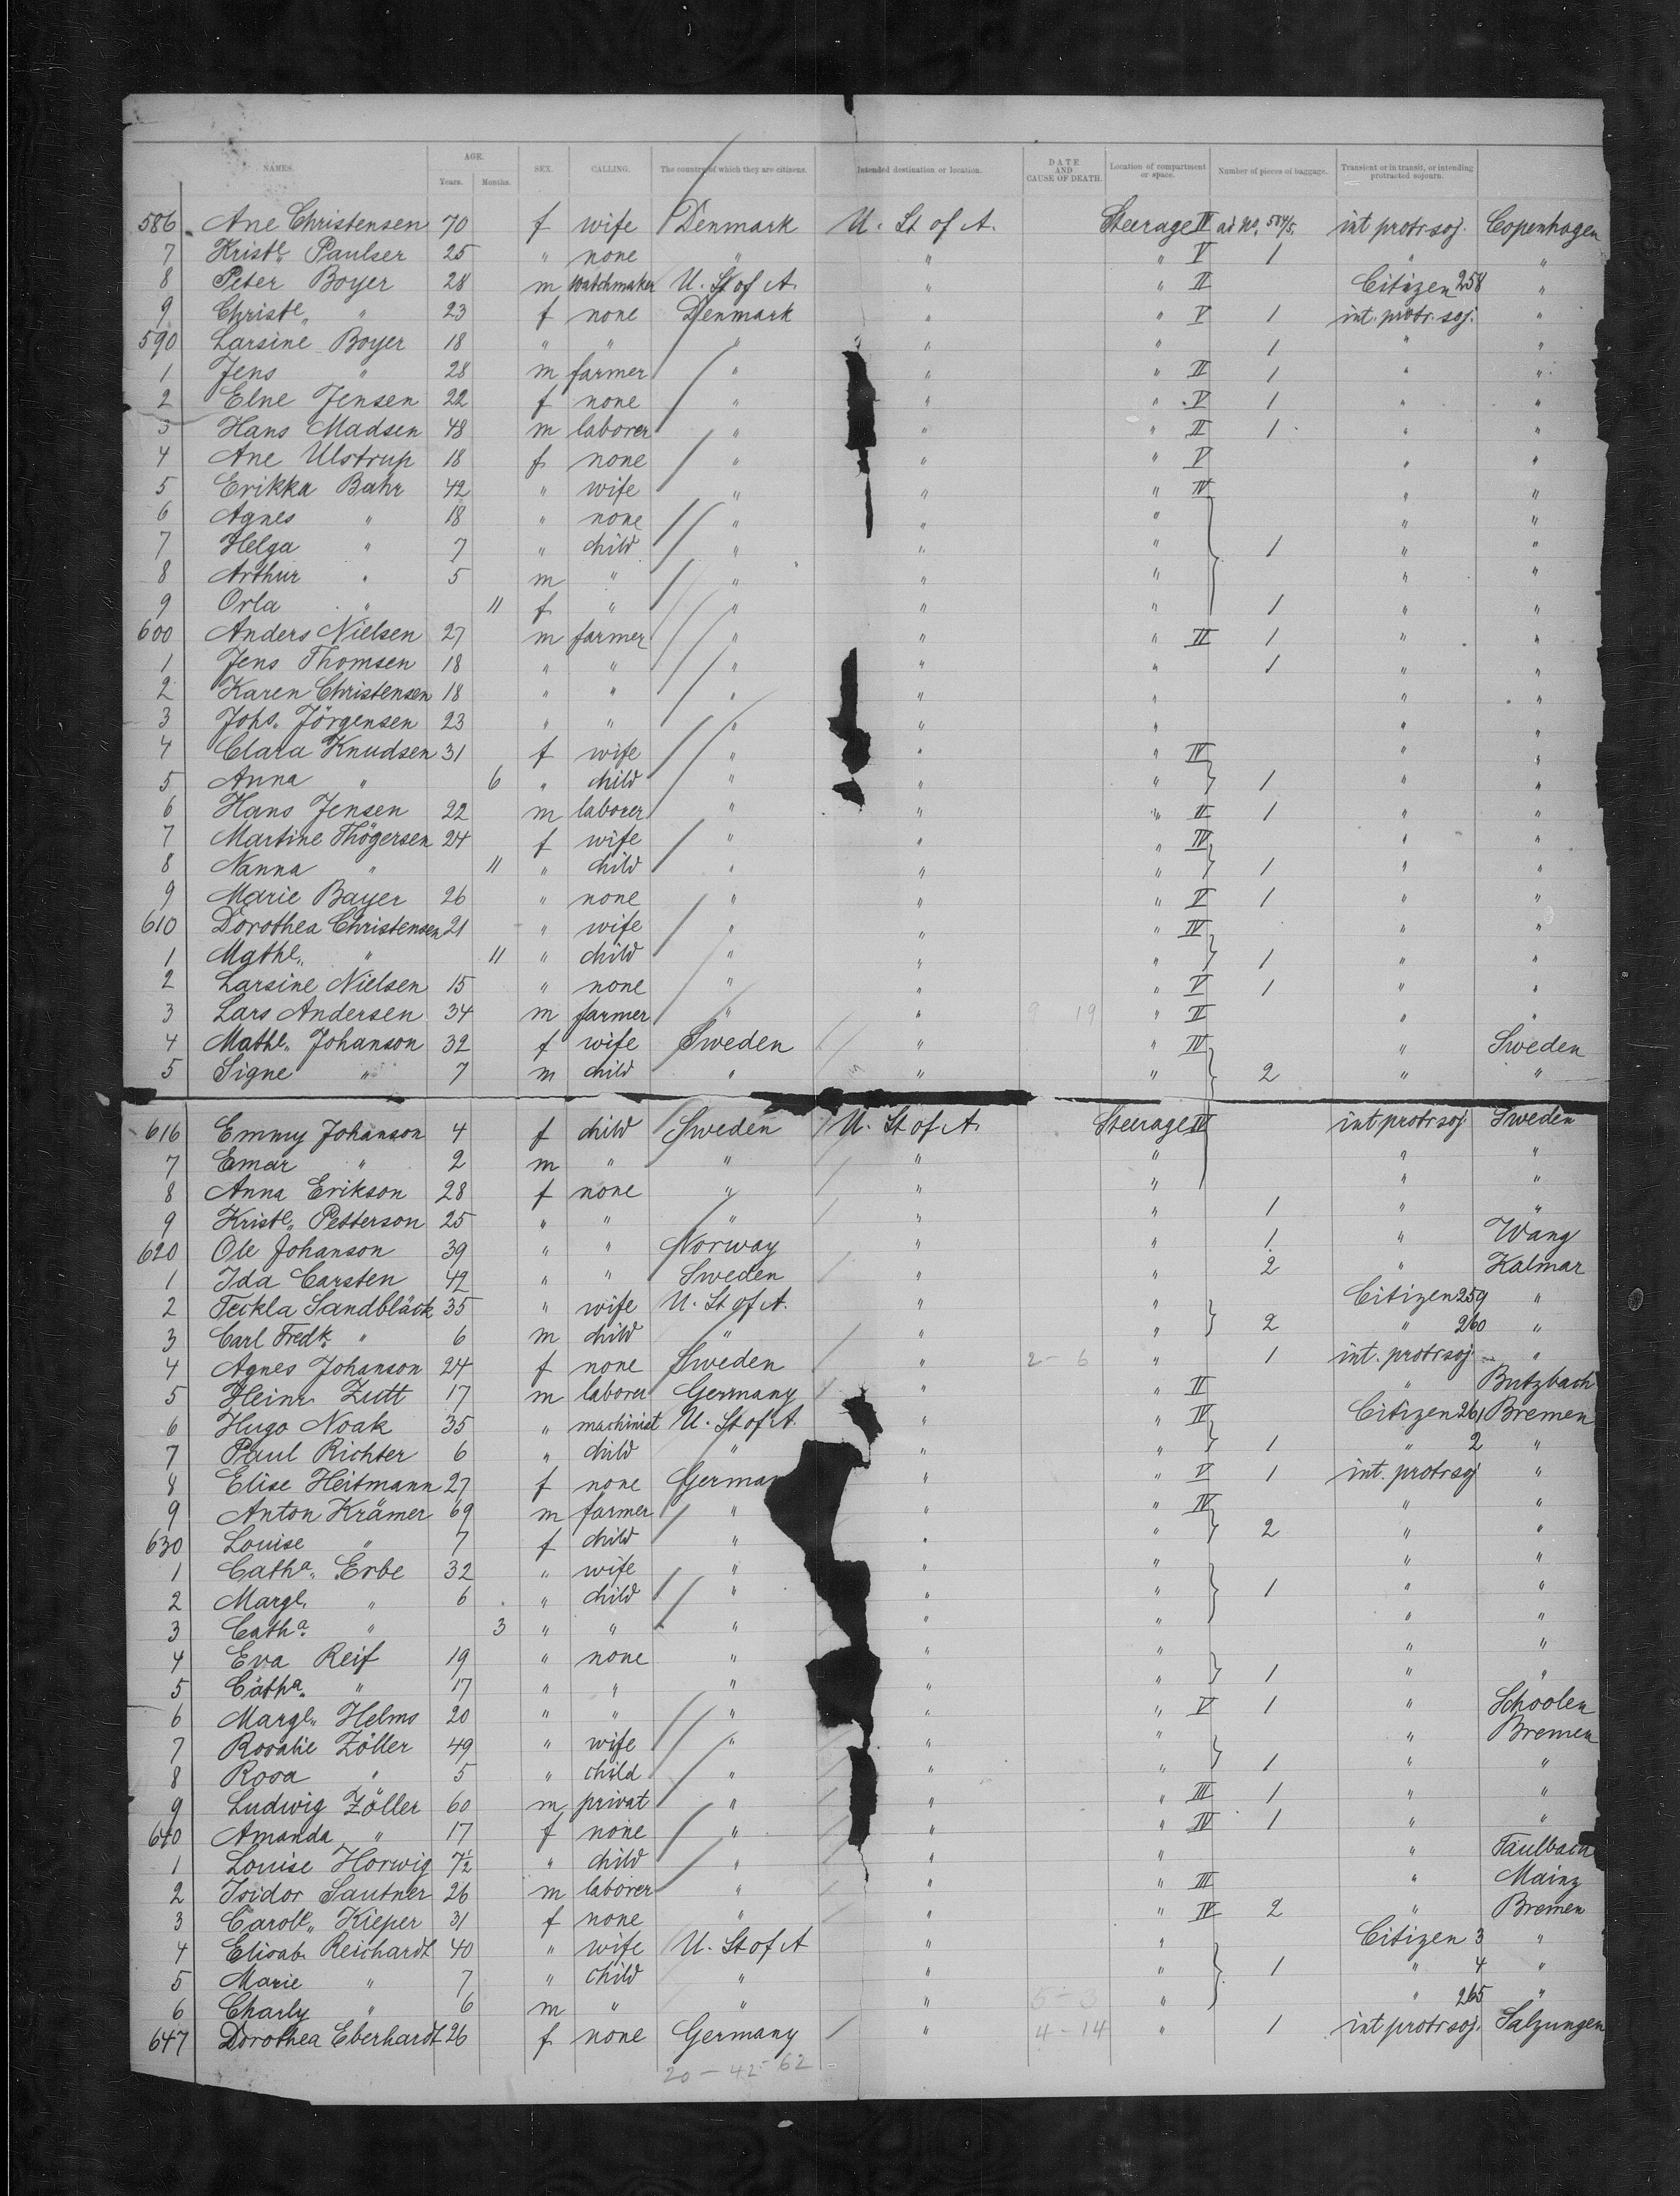 NAMES. AGE. Years. Months. SEX. CALLING. The country of which they are citizens. Intended destination or location. DATE AND CAUSE OF DEATH. Location of compartment or space. Number of pieces of baggage. Transient or in transit, or intending protracted sojourn.
586 Ane Christensen 70 f wife Denmark U. St of A. Steerage IV ad No. 584/5. int protr soj. Copenhagen
7 Kriste. Paulser 25 " none " " " V 1 " "
8 Peter Boyer 28 m watchmaker U. St of A. " " II Citizen 258 "
9 Christe. " 23 f none Denmark " " V 1 int. protr. soj. "
590 Larsine Boyer 18 " " " " " 1 " "
1 Jens " 28 m farmer " " " II 1 " "
2 Elne Jensen 22 f none " " " V 1 " "
3 Hans Madsen 48 m laborer " " " II 1 " "
4 Ane Ulstrup 18 f none " " " V " "
5 Erikka Bahr 42 " wife " " " IV " "
6 Agnes " 18 " none " " " " "
7 Helga " 7 " child " " " 1 " "
8 Arthur " 5 m " " " " " "
9 Orla " 11 f " " " " 1 " "
600 Anders Nielsen 27 m farmer " " " II 1 " "
1 Jens Thomsen 18 " " " " " 1 " "
2 Karen Christensen 18 " " " " " " "
3 Johs. Jörgensen 23 " " " " " " "
4 Clara Knudsen 31 f wife " " " IV " "
5 Anna " 6 " child " " " 1 " "
6 Hans Jensen 22 m laborer " " " II 1 " "
7 Martine Thögersen 24 f wife " " " IV " "
8 Nanna " 11 " child " " " 1 " "
9 Marie Bayer 26 " none " " " V 1 " "
610 Dorothea Christensen 21 " wife " " " IV " "
1 Mathe. " 11 " child " " " 1 " "
2 Larsine Nielsen 15 " none " " " V 1 " "
3 Lars Andersen 34 m farmer " " 9 19 " II " "
4 Mathe. Johanson 32 f wife Sweden " " IV " Sweden
5 Signe " 7 m child " " " 2 " "
616 Emmy Johanson 4 f child Sweden U. St of A. Steerage IV int protr soj. Sweden
7 Emar " 2 m " " " " " "
8 Anna Erikson 28 f none " " " " "
9 Kriste. Petterson 25 " " " " " 1 " "
620 Ole Johanson 39 " " Norway " " 1. " Wang
1 Ida Carsten 42 " " Sweden " " 2 " Kalmar
2 Teckla Sandbläck 35 " wife U. St of A. " " Citizen 259 "
3 Carl Fredk. " 6 m child " " " 2 " 260 "
4 Agnes Johanson 24 f none Sweden " 2-6 " 1 int. protr soj. "
5 Heinr. Zutt 17 m laborer Germany " " II " Butzbach
6 Hugo Noak 35 " machinist U. St of A. " " IV Citizen 261 Bremen
7 Paul Richter 6 " child " " " 1 " 2 "
8 Elise Heitmann 27 f none German " " V 1 int. protr soj "
9 Anton Krämer 69 m farmer " " " IV " "
630 Louise " 7 f child " " " 2 " "
1 Catha. Erbe 32 " wife " " " " "
2 Marge. " 6 " child " " " 1 " "
3 Catha. " 3 " " " " " " "
4 Eva Reif 19 " none " " " " "
5 Catha. " 17 " " " " " 1 " "
6 Marge. Helms 20 " " " " " V 1 " Schoolen
7 Rosalie Zöller 49 " wife " " " " Bremen
8 Rosa " 5 " child " " " 1 " "
9 Ludwig Zöller 60 m privat " " " III 1 " "
640 Amanda " 17 f none " " " IV 1 " "
1 Louise Horwig 7½ " child " " " " Faulbach
2 Isidor Sautner 26 m laborer " " " III " Mainz
3 Carole. Kieper 31 f none " " " IV 2 " Bremen
4 Elisab. Reichardt 40 " wife U. St of A " " Citizen 3 "
5 Marie " 7 " child " " " 1 " 4 "
6 Charly " 6 m " " " 5-3 " " 265 "
647 Dorothea Eberhardt 26 f none Germany " 4-14 " 1 int protr soj. Salzungen
20 - 42 - 62